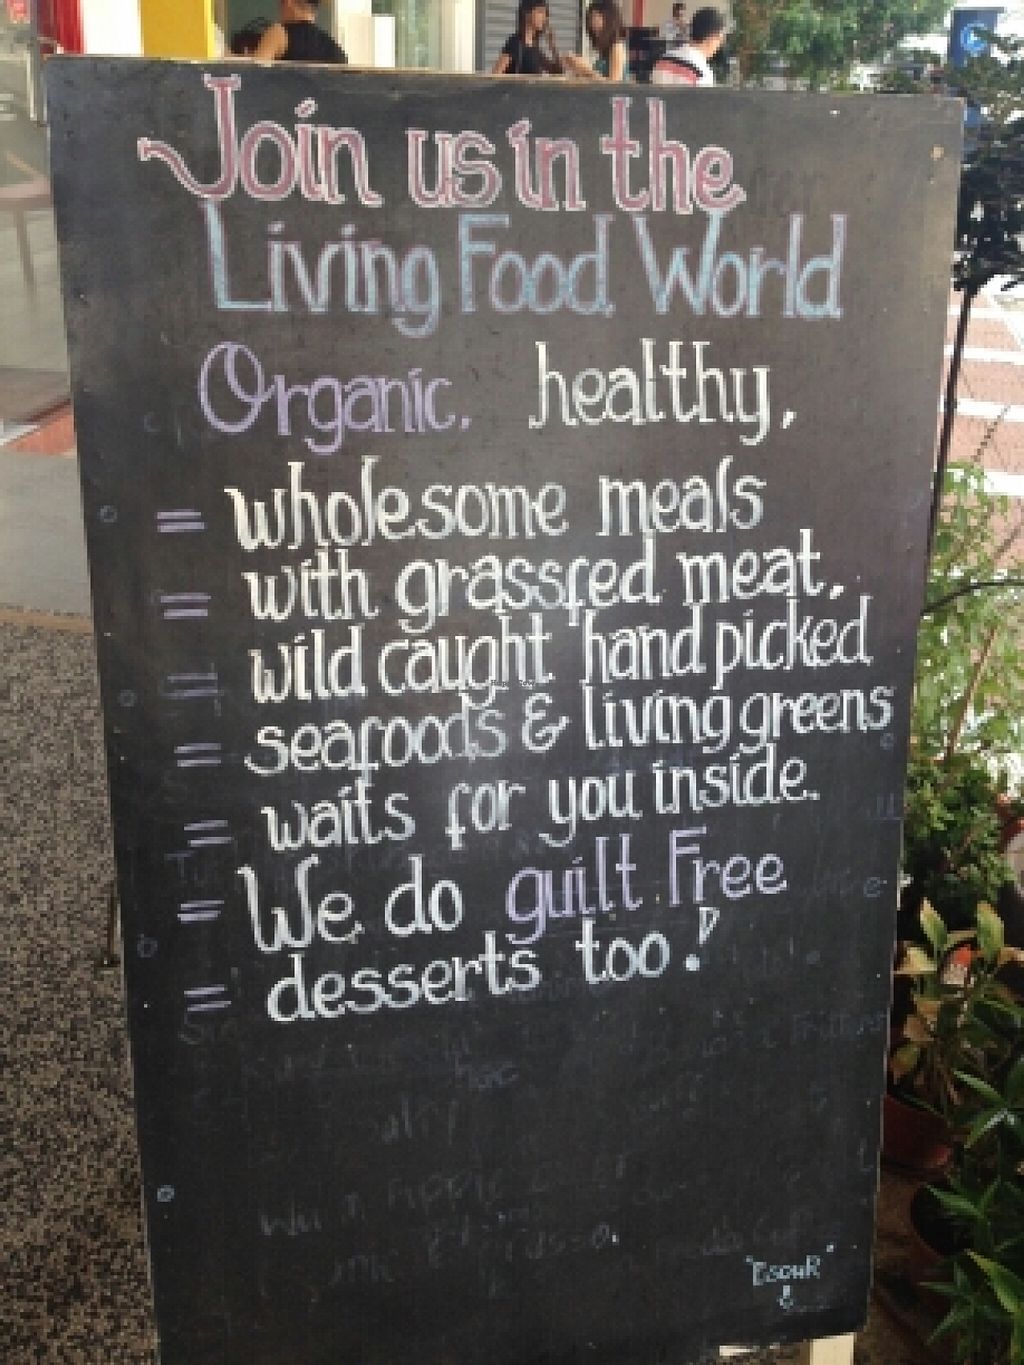 Join us in the
Living Food World
Organic, healthy,
= wholesome meals
= with grassfed meat,
= wild caught hand picked
= seafoods & living greens
= waits for you inside.
= We do guilt Free
= desserts too!